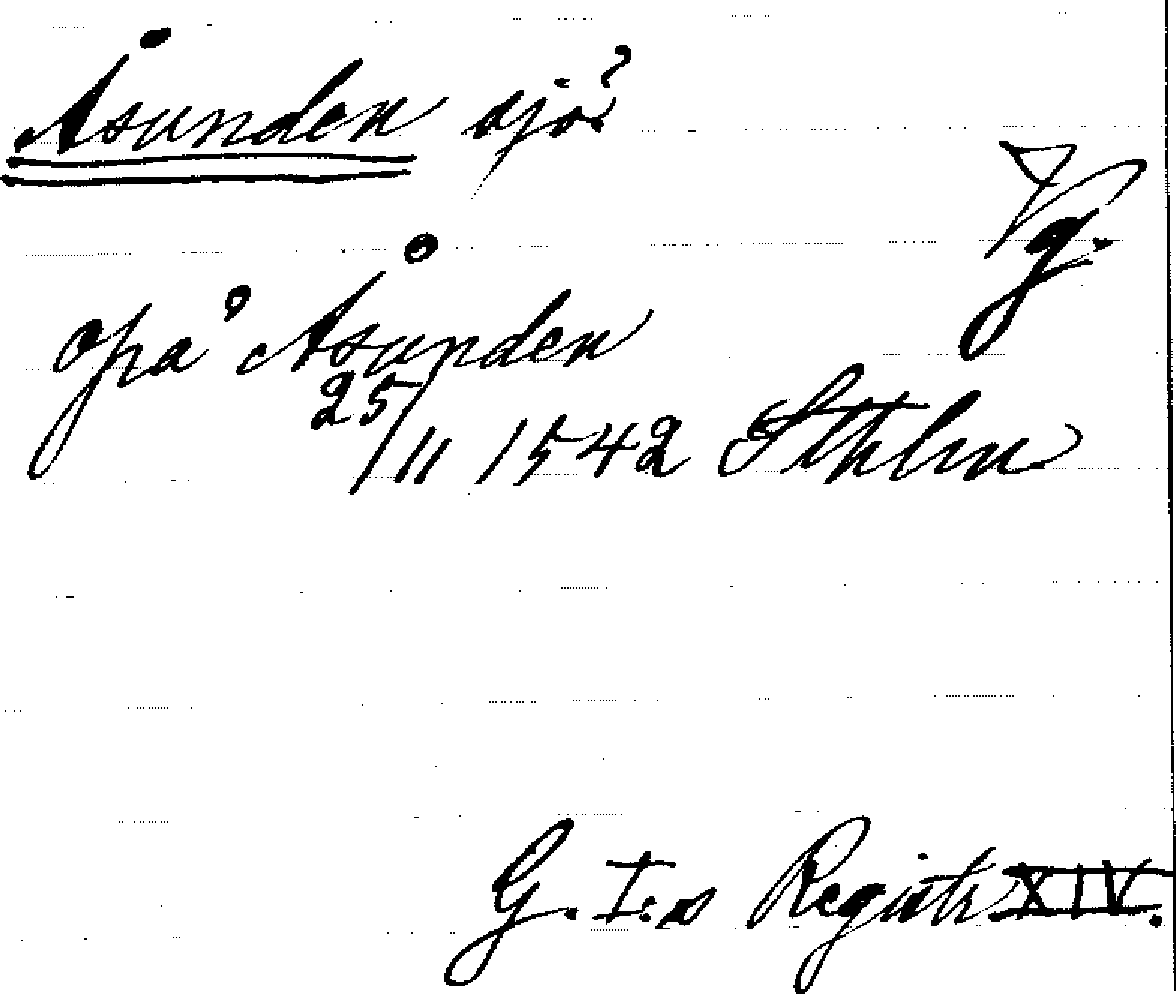 Åsunden sjö?
Vg.
opå Åsunden
25/11 1542 Sthlm
G. I:s Registr XIV.